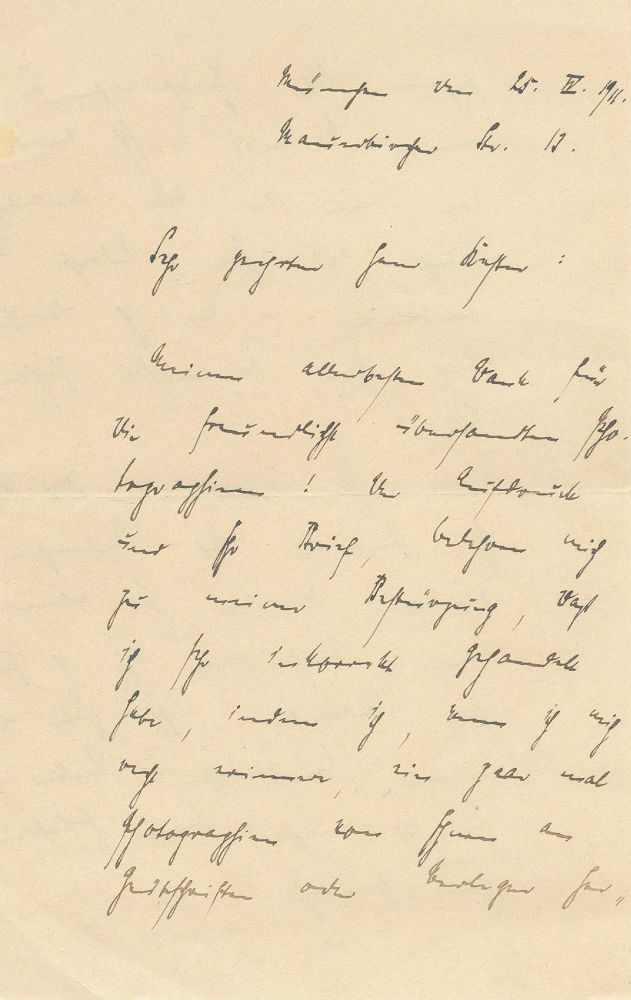 München den 25. IV. 1911.
Mauerkircher Str. 13.
Sehr geehrter Herr Kester:
Meinen allerbesten Dank für
die freundlichst übersandten Pho-
tographien! Ihr Aufdruck
und Ihr Brief, belehren mich
zu meiner Bestürzung, dass
ich sehr inkorrekt gehandelt
habe, indem ich, wenn ich mich
recht erinnere, ein paar mal
Photographien von Ihnen an
Zeitschriften oder Verleger her-